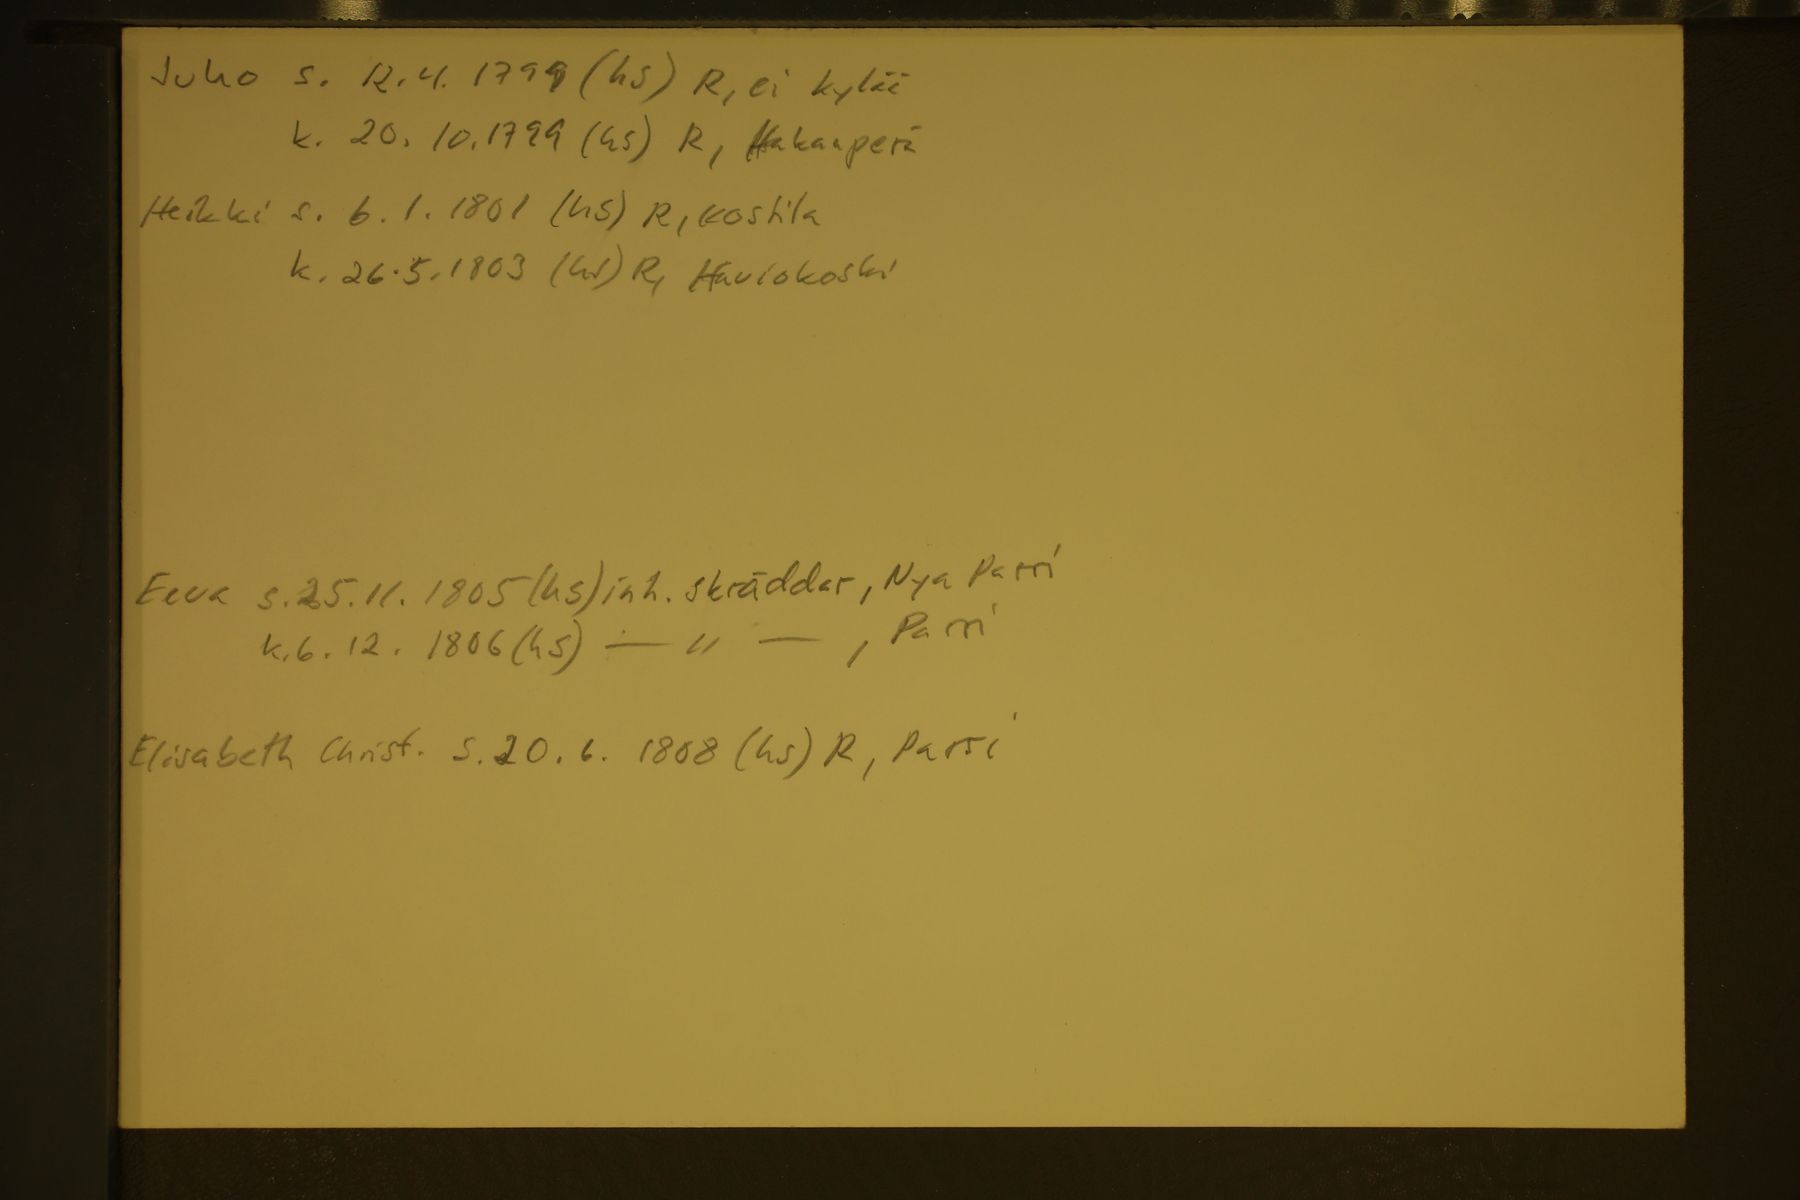 Juho s. 12.4. 1799 (hs) R, ei kylää
k. 20. 10. 1799 (hs) R, Hakaaperä
Heikki s. 6. 1. 1801 (hs) R, Kostila
k. 26.5.1803 (hs) R, Hauiokoski
Eeva s. 25. 11. 1805 (hs) inh. skräddar, Nya Parri
k. 6. 12. 1806 (hs) — " — , Parri
Elisabeth Christ. s. 20. 6. 1808 (hs) R, Parri